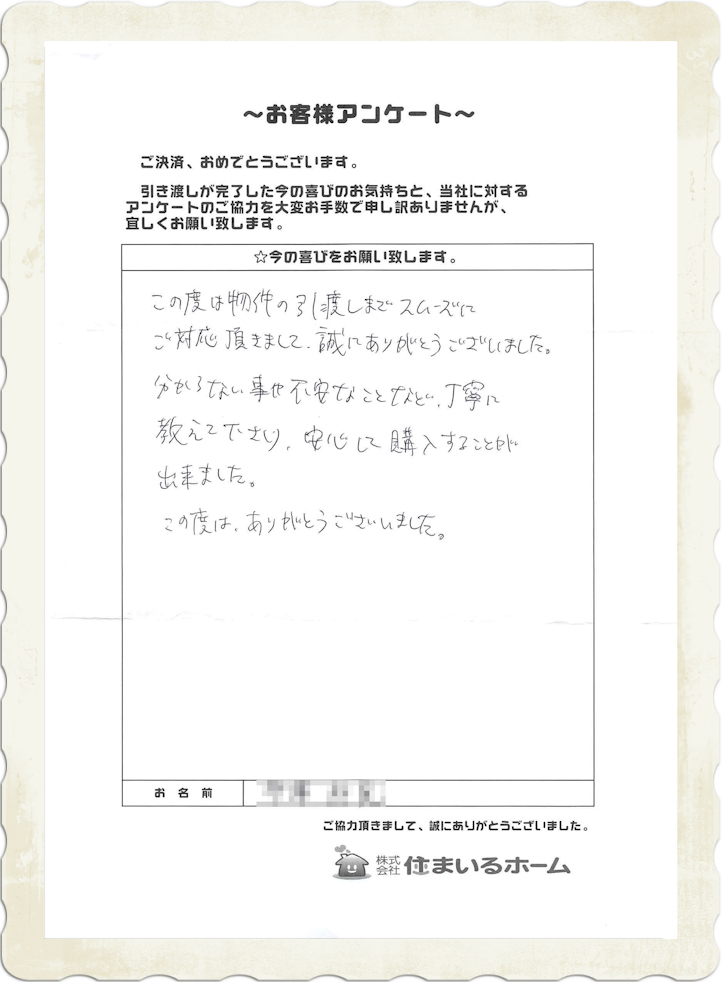 ～お客様アンケート～
ご決済、おめでとうございます。
引き渡しが完了した今の喜びのお気持ちと、当社に対する
アンケートのご協力を大変お手数で申し訳ありませんが、
宜しくお願い致します。
☆今の喜びをお願い致します。
この度は物件の引渡しまでスムーズに
ご対応頂きまして、誠にありがとうございました。
分からない事や不安なことなど、丁寧に
教えて下さり、安心して購入することが
出来ました。
この度は、ありがとうございました。
お名前
ご協力頂きまして、誠にありがとうございました。
株式会社 住まいるホーム